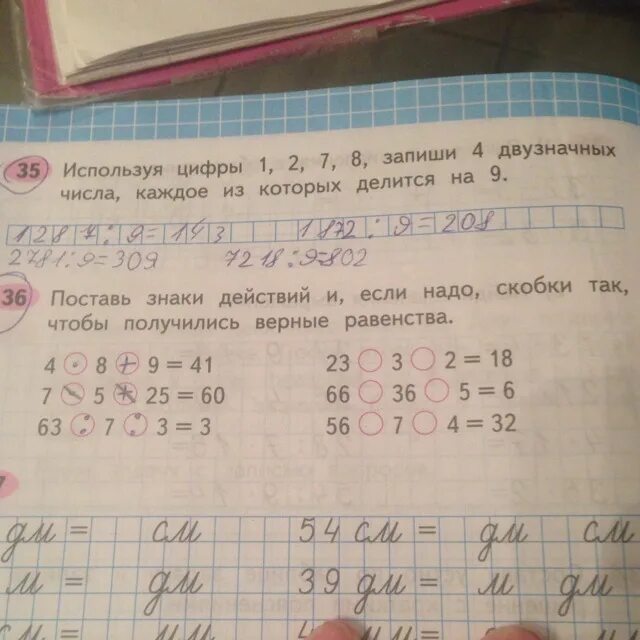 35 Используя цифры 1, 2, 7, 8, запиши 4 двузначных
числа, каждое из которых делится на 9.
1287:9=143 1872:9=208
2781:9=309 7218:9=802
36 Поставь знаки действий и, если надо, скобки так,
чтобы получились верные равенства.
4 · 8 + 9 = 41 23 ○ 3 ○ 2 = 18
7 5 25 = 60 66 ○ 36 ○ 5 = 6
63 : 7 : 3 = 3 56 ○ 7 ○ 4 = 32
дм = см 54 см = дм см
м = дм 39 дм = м дм